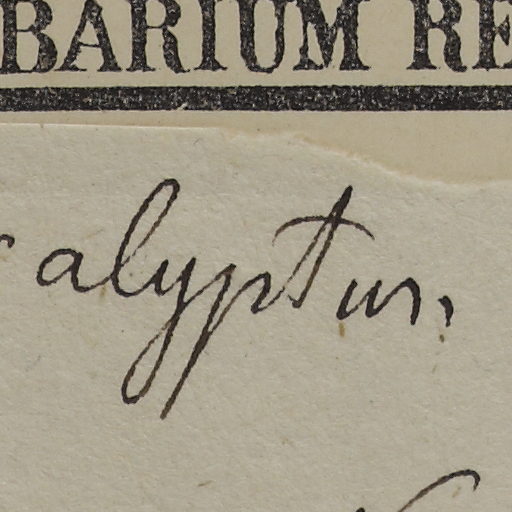 BARIUM RE
alyptus,